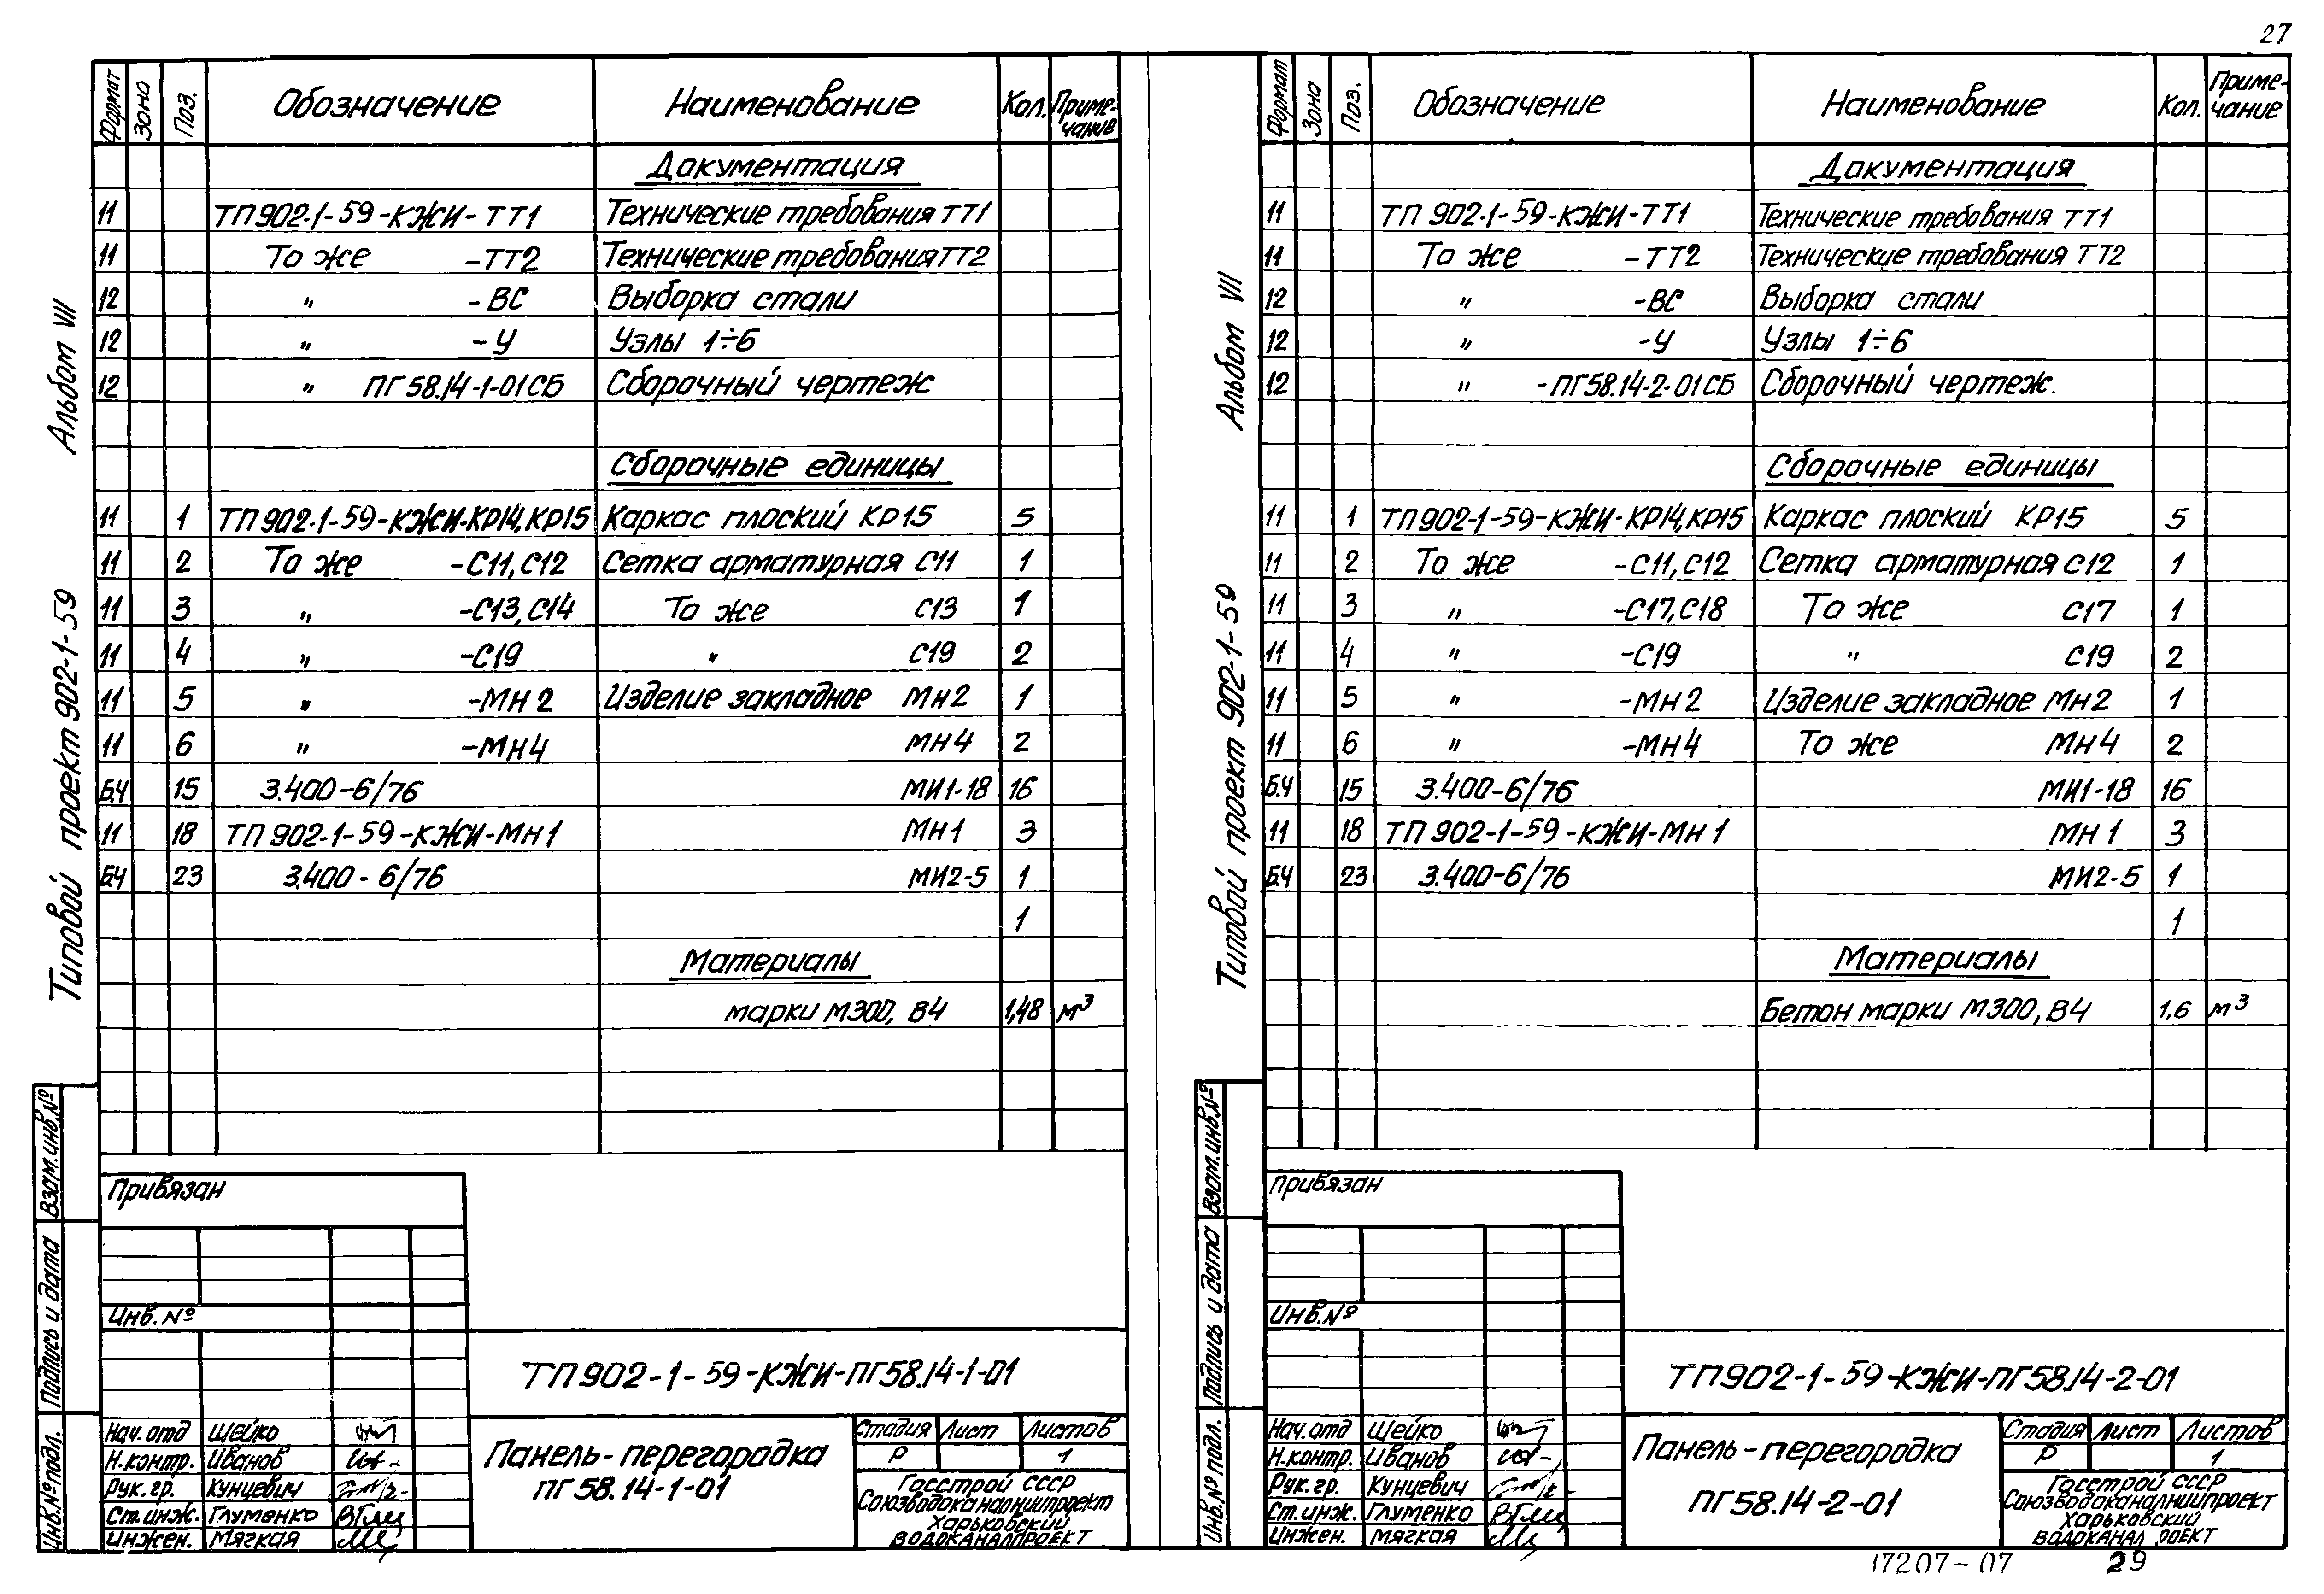 27
Формат Зона Поз. Обозначение Наименование Кол. Приме-чание
Документация
11 ТП902-1-59-КЖИ-ТТ1 Технические требования ТТ1
11 То же -ТТ2 Технические требования ТТ2
12 " -ВС Выборка стали
12 " -У Узлы 1÷6
12 " ПГ58.14-1-01СБ Сборочный чертеж
Сборочные единицы
11 1 ТП902-1-59-КЖИ-КР14,КР15 Каркас плоский КР15 5
11 2 То же -С11,С12 Сетка арматурная С11 1
11 3 " -С13,С14 То же С13 1
11 4 " -С19 " С19 2
11 5 " -МН2 Изделие закладное МН2 1
11 6 " -МН4 МН4 2
Б.Ч 15 3.400-6/76 МИ1-18 16
11 18 ТП902-1-59-КЖИ-МН1 МН1 3
Б.Ч 23 3.400-6/76 МИ2-5 1
1
Материалы
марки М300, В4 1,48 м³
Альбом VII
Типовой проект 902-1-59
Взам.инв.№
Подпись и дата
Инв.№ подл.
Привязан
Инв.№
ТП902-1-59-КЖИ-ПГ58.14-1-01
Нач.отд Шейко
Н.контр. Иванов
Рук.гр. Кунцевич
Ст.инж. Глуменко
Инжен. Мягкая
Панель-перегородка
ПГ58.14-1-01
Стадия Лист Листов
Р 1
Госстрой СССР
Союзводоканалниипроект
Харьковский
ВОДОКАНАЛПРОЕКТ
Формат Зона Поз. Обозначение Наименование Кол. Приме-чание
Документация
11 ТП902-1-59-КЖИ-ТТ1 Технические требования ТТ1
11 То же -ТТ2 Технические требования ТТ2
12 " -ВС Выборка стали
12 " -У Узлы 1÷6
12 " -ПГ58.14-2-01СБ Сборочный чертеж.
Сборочные единицы
11 1 ТП902-1-59-КЖИ-КР14,КР15 Каркас плоский КР15 5
11 2 То же -С11,С12 Сетка арматурная С12 1
11 3 " -С17,С18 То же С17 1
11 4 " -С19 " С19 2
11 5 " -МН2 Изделие закладное МН2 1
11 6 " -МН4 То же МН4 2
Б.Ч 15 3.400-6/76 МИ1-18 16
11 18 ТП902-1-59-КЖИ-МН1 МН1 3
Б.Ч 23 3.400-6/76 МИ2-5 1
1
Материалы
Бетон марки М300, В4 1,6 м³
Альбом VII
Типовой проект 902-1-59
Взам.инв.№
Подпись и дата
Инв.№ подл.
Привязан
Инв.№
ТП902-1-59-КЖИ-ПГ58.14-2-01
Нач.отд Шейко
Н.контр. Иванов
Рук.гр. Кунцевич
Ст.инж. Глуменко
Инжен. Мягкая
Панель-перегородка
ПГ58.14-2-01
Стадия Лист Листов
Р 1
Госстрой СССР
Союзводоканалниипроект
Харьковский
ВОДОКАНАЛ РОЕКТ
17207-07 29